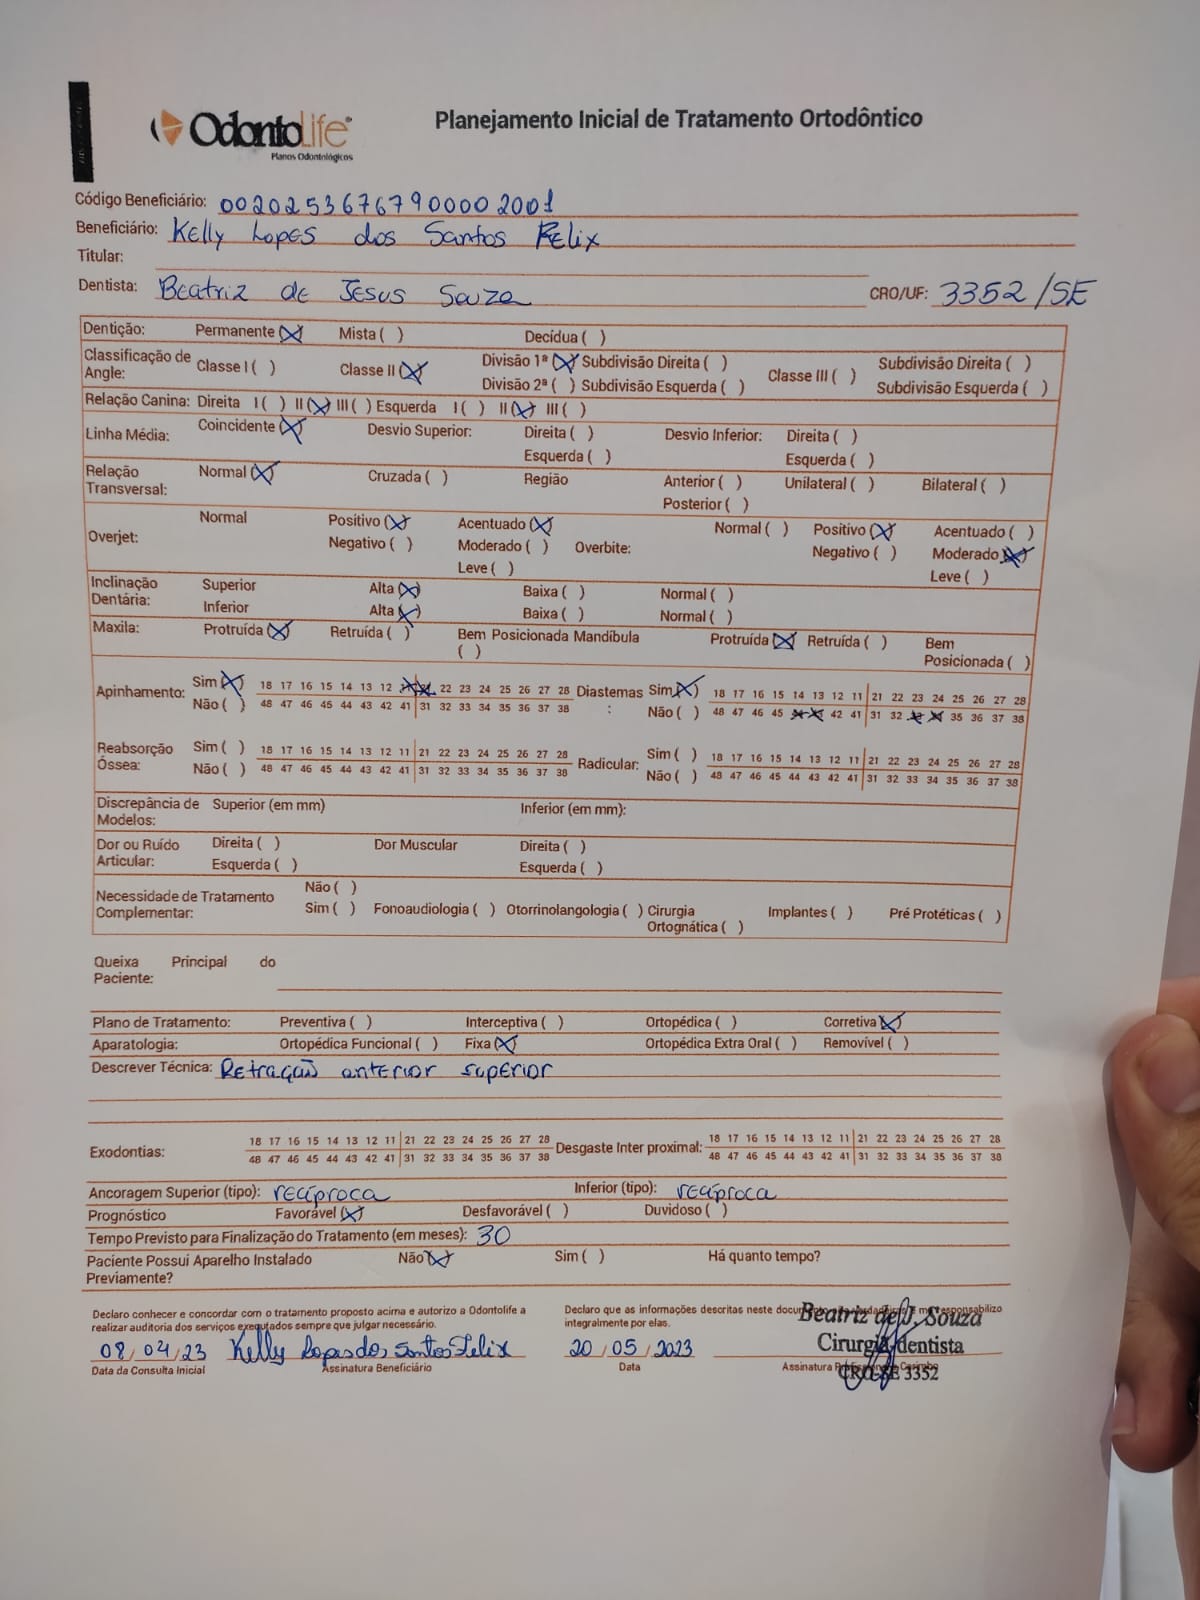 OdontoLife
Planos Odontológicos
Planejamento Inicial de Tratamento Ortodôntico
Código Beneficiário: 00202536767900002001
Beneficiário: Kelly Lopes dos Santos Felix
Titular:
Dentista: Beatriz de Jesus Souza CRO/UF: 3352/SE
Dentição: Permanente (X) Mista ( ) Decídua ( )
Classificação de Angle: Classe I ( ) Classe II (X) Divisão 1ª (X) Subdivisão Direita ( ) Classe III ( ) Subdivisão Direita ( )
Divisão 2ª ( ) Subdivisão Esquerda ( ) Subdivisão Esquerda ( )
Relação Canina: Direita I ( ) II (X) III ( ) Esquerda I ( ) II (X) III ( )
Linha Média: Coincidente (X) Desvio Superior: Direita ( ) Desvio Inferior: Direita ( )
Esquerda ( ) Esquerda ( )
Relação Transversal: Normal (X) Cruzada ( ) Região Anterior ( ) Unilateral ( ) Bilateral ( )
Posterior ( )
Overjet: Normal Positivo (X) Acentuado (X) Overbite: Normal ( ) Positivo (X) Acentuado ( )
Negativo ( ) Moderado ( ) Negativo ( ) Moderado (X)
Leve ( ) Leve ( )
Inclinação Dentária: Superior Alta (X) Baixa ( ) Normal ( )
Inferior Alta (X) Baixa ( ) Normal ( )
Maxila: Protruída (X) Retruída ( ) Bem Posicionada ( ) Mandíbula Protruída (X) Retruída ( ) Bem Posicionada ( )
Apinhamento: Sim (X) 18 17 16 15 14 13 12 22 23 24 25 26 27 28 Diastemas: Sim (X) 18 17 16 15 14 13 12 11 21 22 23 24 25 26 27 28
Não ( ) 48 47 46 45 44 43 42 41 31 32 33 34 35 36 37 38 Não ( ) 48 47 46 45 42 41 31 32 35 36 37 38
Reabsorção Óssea: Sim ( ) 18 17 16 15 14 13 12 11 21 22 23 24 25 26 27 28 Radicular: Sim ( ) 18 17 16 15 14 13 12 11 21 22 23 24 25 26 27 28
Não ( ) 48 47 46 45 44 43 42 41 31 32 33 34 35 36 37 38 Não ( ) 48 47 46 45 44 43 42 41 31 32 33 34 35 36 37 38
Discrepância de Modelos: Superior (em mm) Inferior (em mm):
Dor ou Ruído Articular: Direita ( ) Dor Muscular Direita ( )
Esquerda ( ) Esquerda ( )
Necessidade de Tratamento Complementar: Não ( )
Sim ( ) Fonoaudiologia ( ) Otorrinolangologia ( ) Cirurgia Ortognática ( ) Implantes ( ) Pré Protéticas ( )
Queixa Principal do Paciente:
Plano de Tratamento: Preventiva ( ) Interceptiva ( ) Ortopédica ( ) Corretiva (X)
Aparatologia: Ortopédica Funcional ( ) Fixa (X) Ortopédica Extra Oral ( ) Removível ( )
Descrever Técnica: Retração anterior superior
Exodontias: 18 17 16 15 14 13 12 11 21 22 23 24 25 26 27 28 Desgaste Inter proximal: 18 17 16 15 14 13 12 11 21 22 23 24 25 26 27 28
48 47 46 45 44 43 42 41 31 32 33 34 35 36 37 38 48 47 46 45 44 43 42 41 31 32 33 34 35 36 37 38
Ancoragem Superior (tipo): recíproca Inferior (tipo): recíproca
Prognóstico Favorável (X) Desfavorável ( ) Duvidoso ( )
Tempo Previsto para Finalização do Tratamento (em meses): 30
Paciente Possui Aparelho Instalado Previamente? Não (X) Sim ( ) Há quanto tempo?
Declaro conhecer e concordar com o tratamento proposto acima e autorizo a Odontolife a
realizar auditoria dos serviços executados sempre que julgar necessário.
Declaro que as informações descritas neste me responsabilizo
integralmente por elas.
Beatriz de J. Souza
Cirurgiã-dentista
CRO-SE 3352
08/04/23 Kelly Lopes dos Santos Felix 20/05/2023
Data da Consulta Inicial Assinatura Beneficiário Data Assinatura